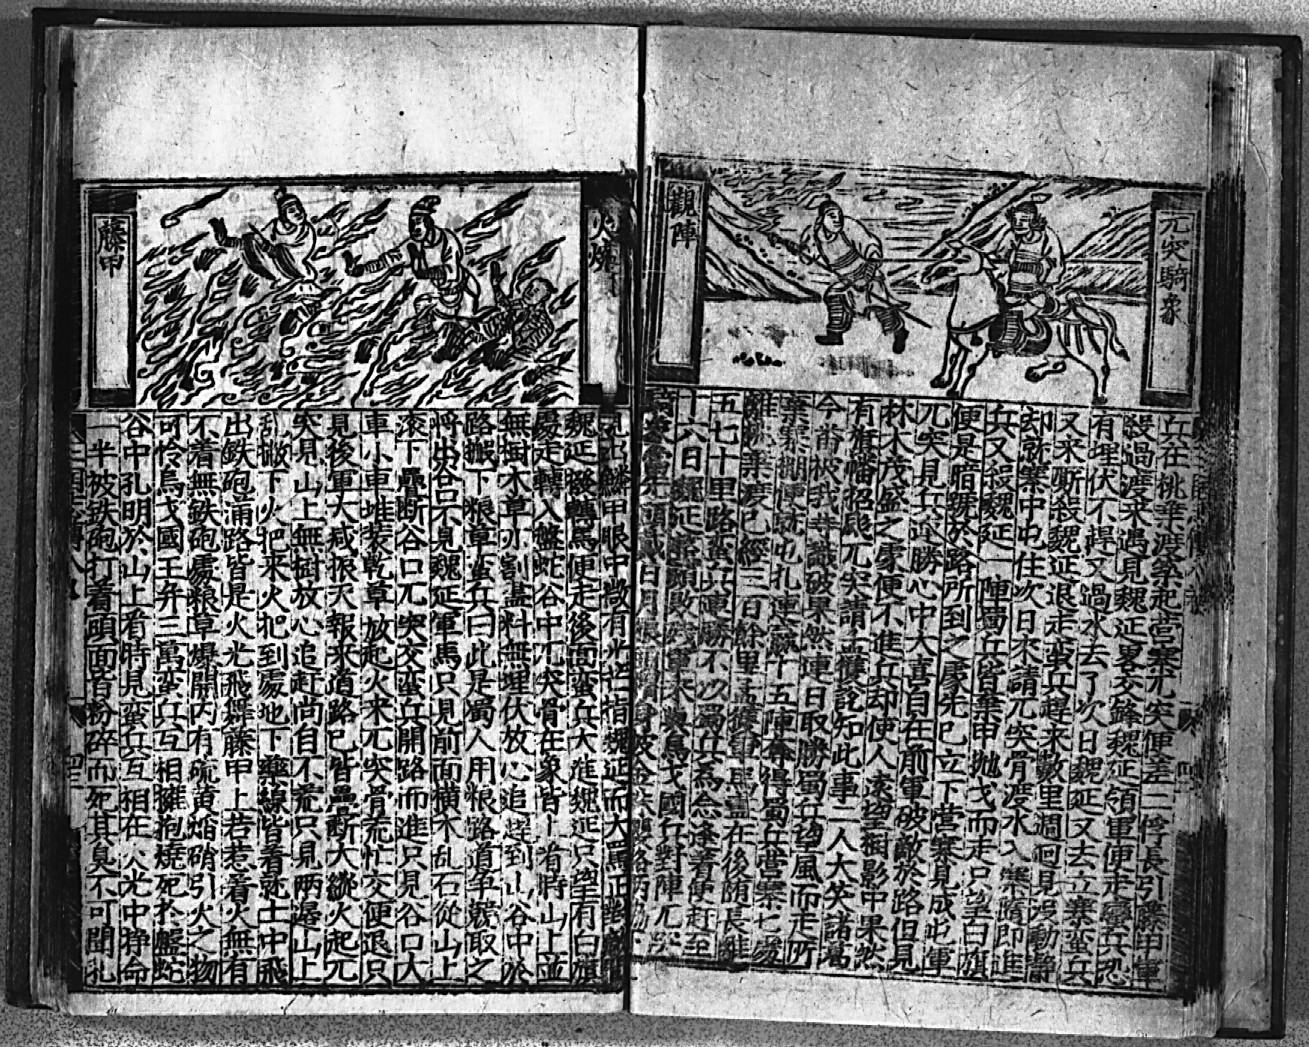 兀突騎象
觀陣
兵在桃葉渡築起營寨兀突便差二俘長引藤甲軍
殺過渡來遇見魏延畧交鋒魏延領軍便走蠻兵恐
有埋伏不趕又過水去了次日魏延又去立寨蛮兵
又來斬殺魏延退走蛮兵趕來數里週回見没動静
却就寨中屯住次日來請兀突骨渡水入寨隨即進
兵又殺魏延一陣蜀兵皆棄甲抛戈而走只望白旗
便是暗號於路所到之處先已立下營寨見成屯軍
兀突見兵迎勝心中大喜自在前軍破敵於路但見
林木茂盛之處便不進兵却使人遠望樹影中果然
有旌幡招颭兀突請孟獲說知此事二人大笑諸葛
今番被我等識破果然連日取勝蜀兵望風而走所
棄寨柵便就屯扎連贏十五陣奪得蜀兵營寨七處
桃葉渡已經三百餘里孟獲軍馬盡在後随長
五七十里路蛮兵連勝不以蜀兵爲念逢着便赶至
十六日魏延當頭敗殘軍來與烏戈國兵對陣兀突
火燒
藤甲
鱗甲眼中微有光芒指魏延而大罵
魏延撥轉馬便走後面蛮兵大進魏延只望有白旗
處走轉入盤蛇谷中兀突骨在象皆上看時山上並
無樹木草亦割盡料無埋伏放心追趕到山谷中於
路搬下粮草蛮兵曰此是蜀人用粮路道爭競取之
將出谷口不見魏延軍馬只見前面橫木乱石從山上
滚下壘断谷口兀突交蛮兵開路而進只見谷口大
車小車堆裝乾草放起火來兀突骨荒忙交便退只
見後軍大喊振天報來道路已皆壘断大縱火起兀
突見山上無樹放心追赶尚自不荒只見兩邉山上
乱撇下火把來火把到處地下藥線皆着就土中飛
出鉄砲滿路皆是火光飛舞藤甲上若惹着火無有
不着無鉄砲處粮草爆開内有硫黄焔硝引火之物
可怜烏戈國王并三萬蛮兵互相擁抱燒死於盤蛇
谷中孔明於山上看時見蛮兵互相在火光中挣命
一半被鉄砲打着頭面皆粉碎而死其臭不可聞孔